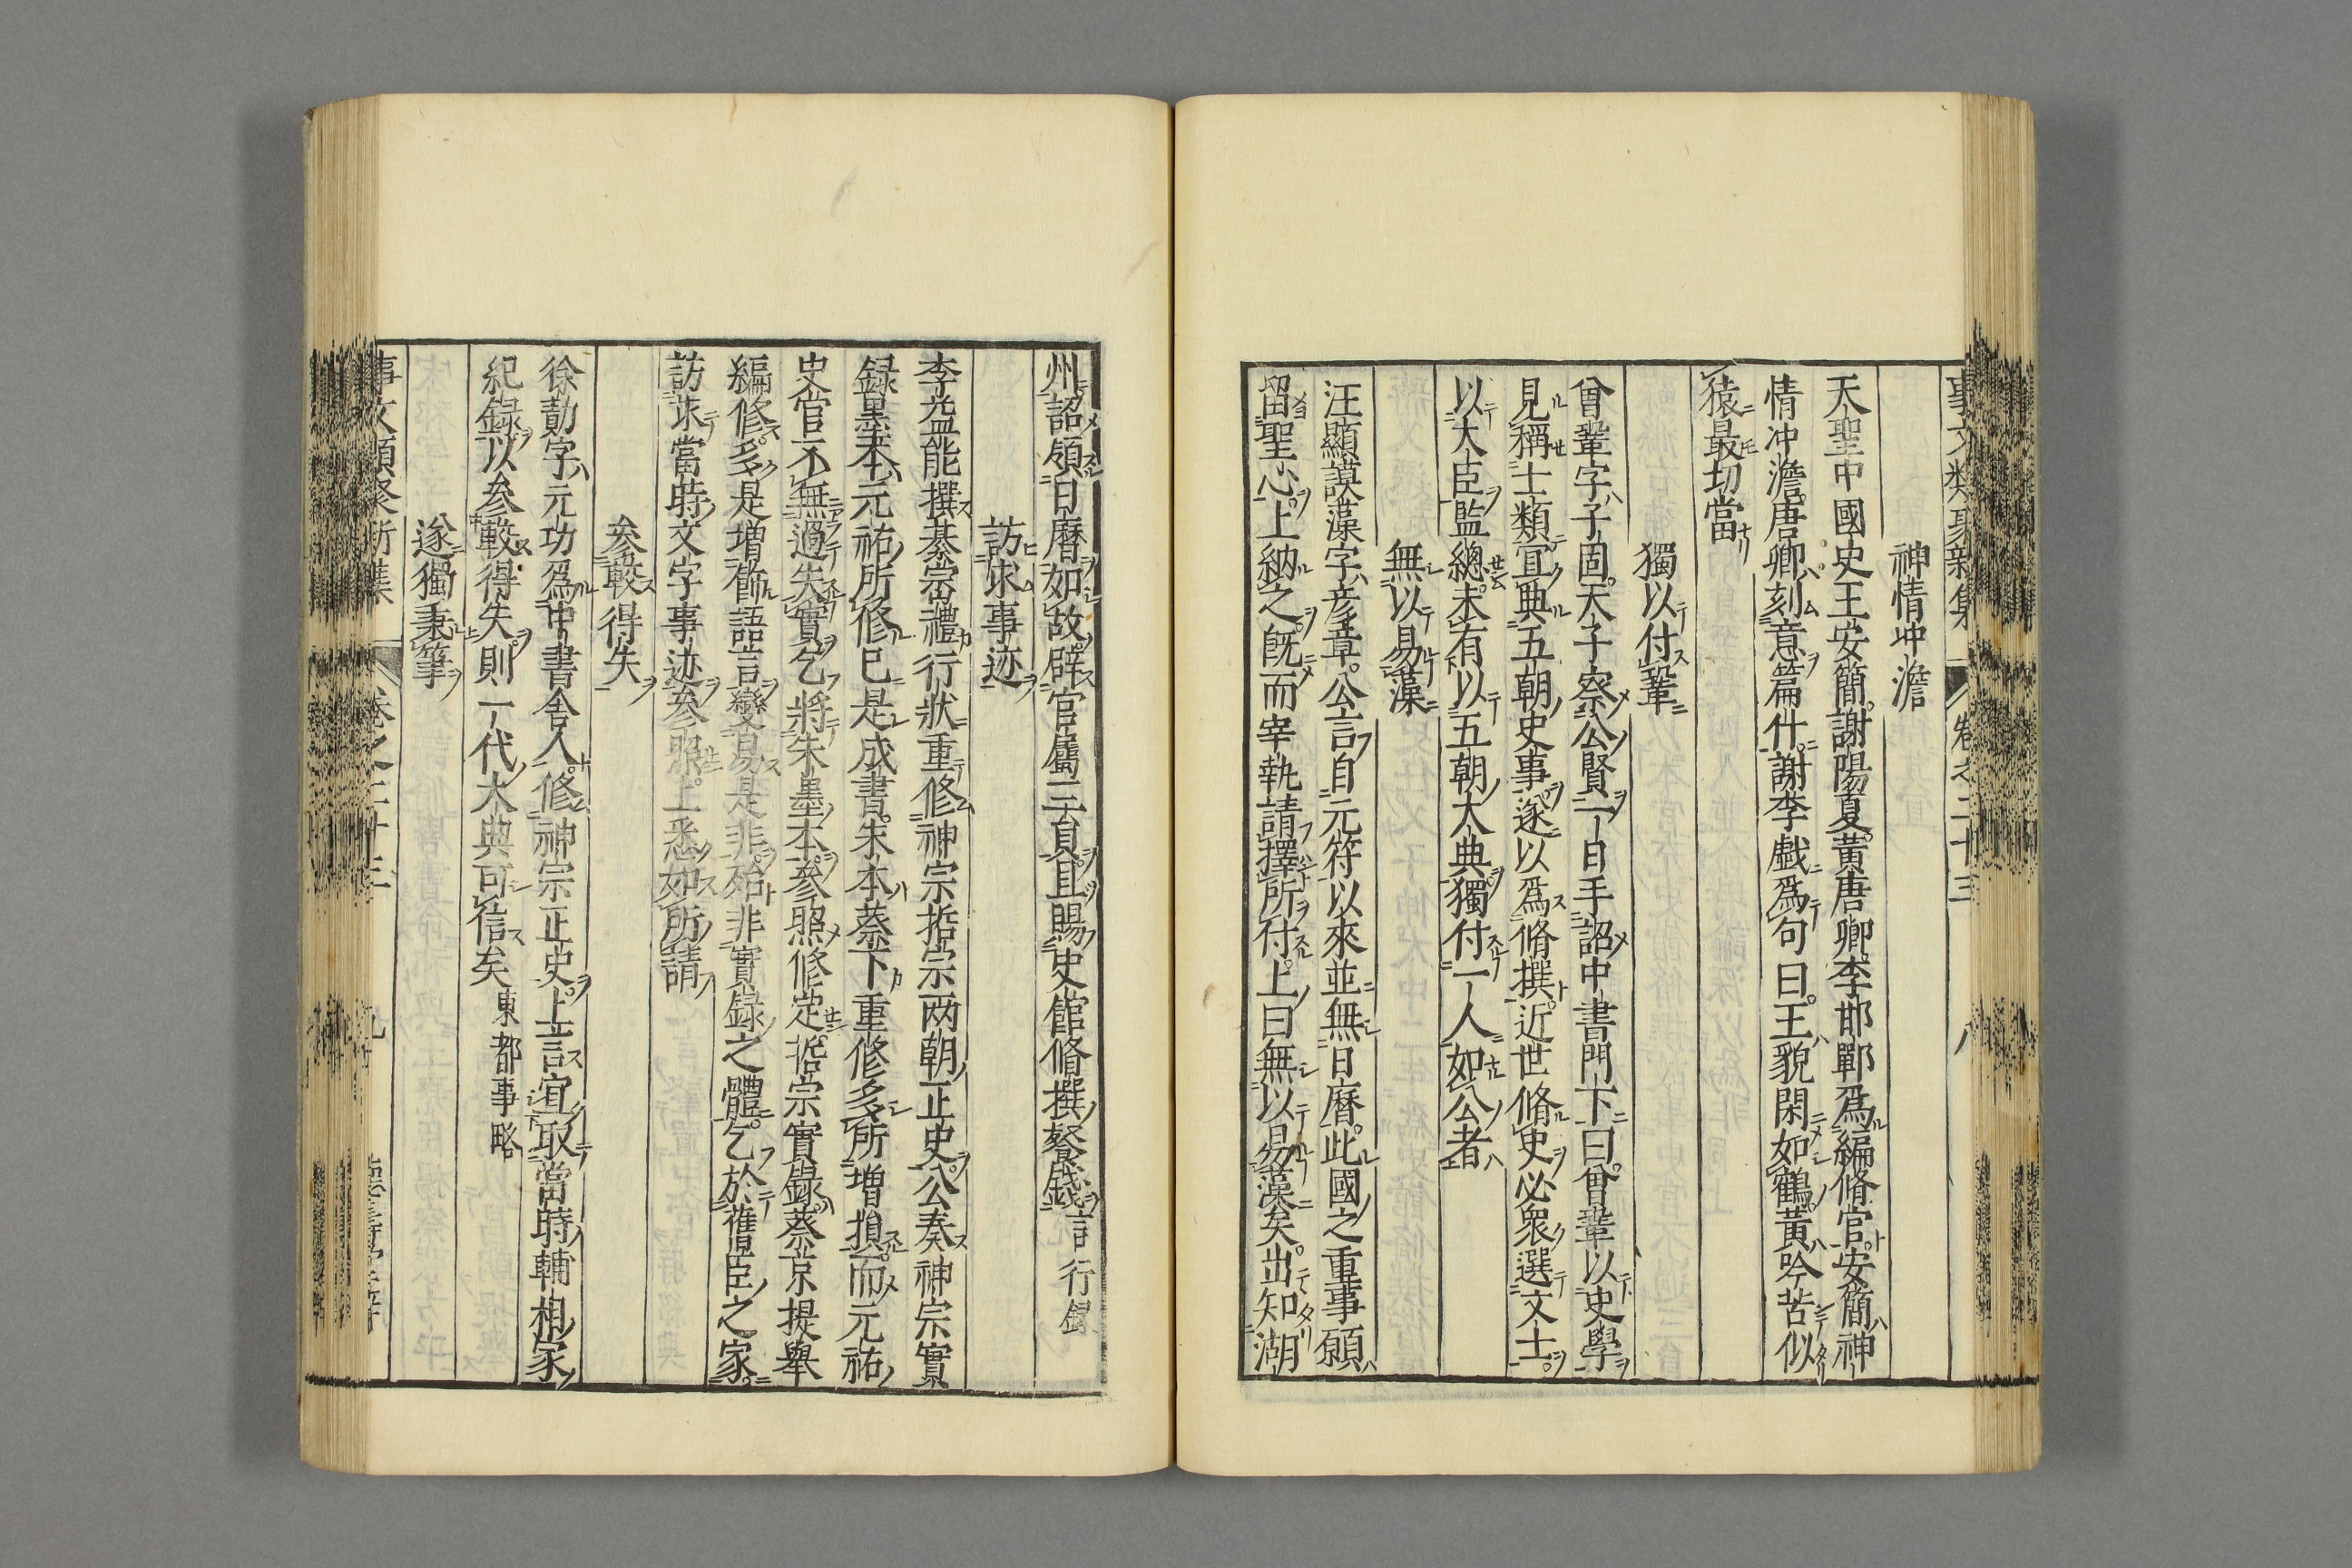 事文類聚新集 卷之二十三 八
神情冲澹
天聖中國史王安簡謝陽夏黃唐卿李邯鄲爲編脩官安簡神
情冲澹唐卿刻意篇什謝李戲爲句曰王貌閑如鶴黃吟苦似
猿最切當
獨以付鞏
曾鞏字子固天子察公賢一日手詔中書門下曰曾鞏以史學
見稱士類宜典五朝史事遂以爲脩撰近世脩史必衆選文士
以大臣監總未有以五朝大典獨付一人如公者
無以易藻
汪顯謨藻字彦章公言自元符以來並無日曆此國之重事願
留聖心上納之旣而宰執請擇所付上曰無以易藻矣出知湖
州詔領日曆如故辟官屬二員且賜史館脩撰餐錢言行録
訪求事迹
李益能撰綦崈禮行狀重修神宗哲宗兩朝正史公奏神宗實
録墨本元祐所修已是成書朱本蔡卞重修多所增損而元祐
史官不無過失實乞將朱墨本參照修定哲宗實錄蔡京提舉
編修多是增飾語言變易是非殆非實録之體乞於舊臣之家
訪求當時文字事迹參照上悉如所請
參較得失
徐勣字元功爲中書舍人修神宗正史上言宜取當時輔相家
紀録以參較得失則一代大典可信矣東都事略
遂獨秉筆
事文類聚新集 卷之二十三 九